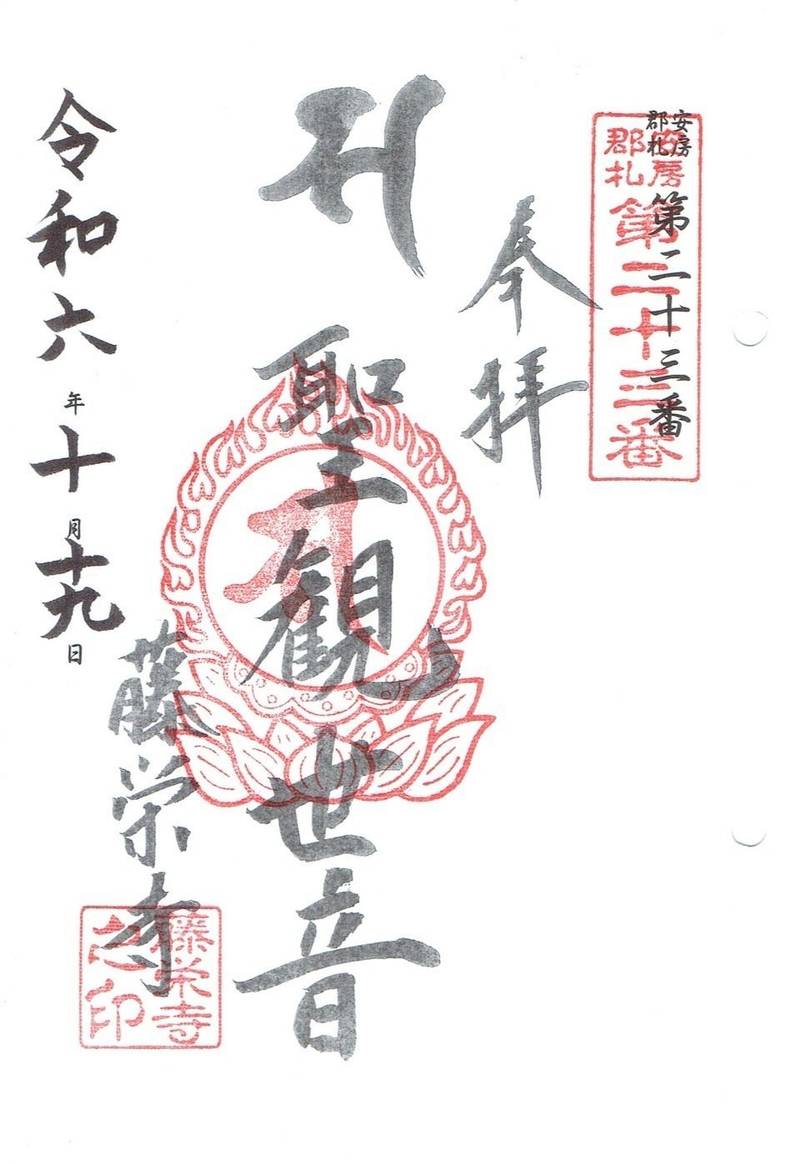 安房
郡札
第二十三番
安房
郡札
第二十三番
奉拝
聖観世音
藤栄寺
藤栄寺
之印
令和六年十月十九日